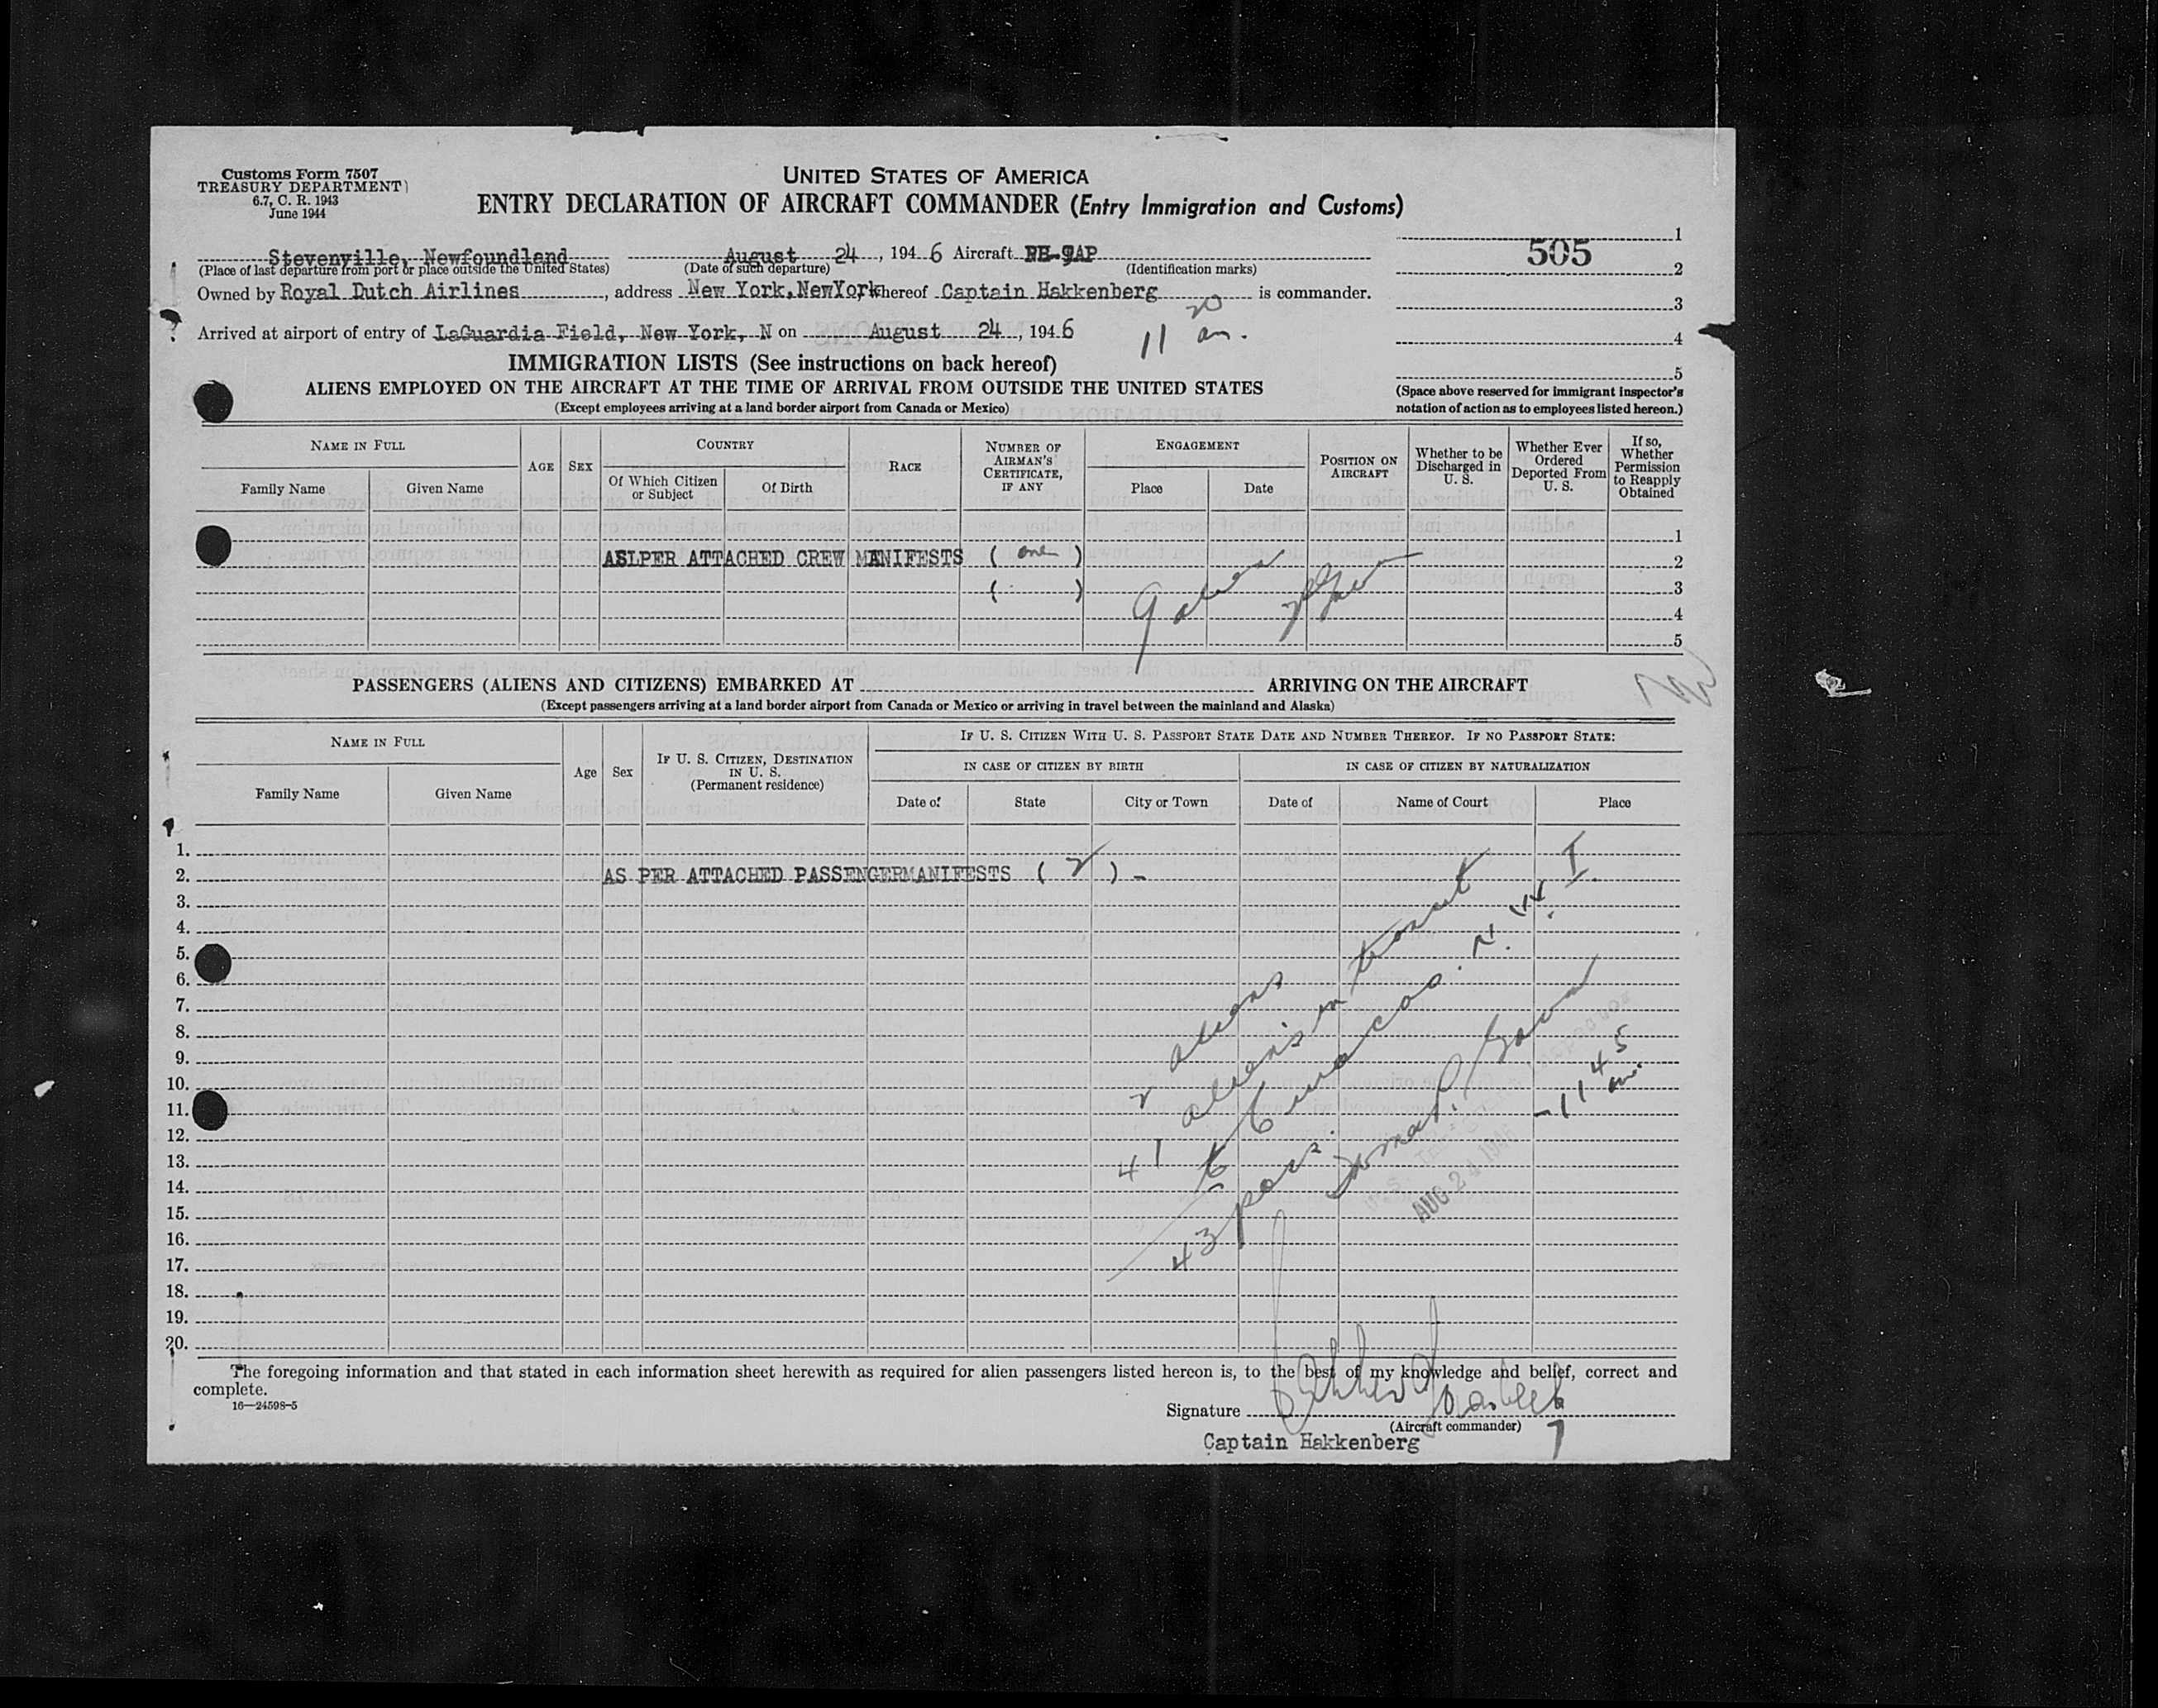 Customs Form 7507
TREASURY DEPARTMENT
6.7, C. R. 1943
June 1944
UNITED STATES OF AMERICA
ENTRY DECLARATION OF AIRCRAFT COMMANDER (Entry Immigration and Customs)
Stevenville, Newfoundland August 24, 1946 Aircraft
(Place of last departure from port or place outside the United States) (Date of such departure) (Identification marks)
Owned by Royal Dutch Airlines, address New York, NewYork, whereof Captain Hakkenberg is commander.
Arrived at airport of entry of LaGuardia Field, New York, N on August 24, 1946
11 20 am.
505
1
2
3
4
5
(Space above reserved for immigrant inspector's
notation of action as to employees listed hereon.)
IMMIGRATION LISTS (See instructions on back hereof)
ALIENS EMPLOYED ON THE AIRCRAFT AT THE TIME OF ARRIVAL FROM OUTSIDE THE UNITED STATES
(Except employees arriving at a land border airport from Canada or Mexico)
NAME IN FULL
Family Name
Given Name
AGE
SEX
COUNTRY
Of Which Citizen or Subject
Of Birth
RACE
NUMBER OF AIRMAN'S CERTIFICATE, IF ANY
ENGAGEMENT
Place
Date
POSITION ON AIRCRAFT
Whether to be Discharged in U. S.
Whether Ever Ordered Deported From U. S.
If so, Whether Permission to Reapply Obtained
1
AS PER ATTACHED CREW MANIFESTS ( one ) 2
( ) 3
4
5
9 aliens
PASSENGERS (ALIENS AND CITIZENS) EMBARKED AT ARRIVING ON THE AIRCRAFT
(Except passengers arriving at a land border airport from Canada or Mexico or arriving in travel between the mainland and Alaska)
NAME IN FULL
Family Name
Given Name
Age
Sex
IF U. S. CITIZEN, DESTINATION IN U. S.
(Permanent residence)
IF U. S. CITIZEN WITH U. S. PASSPORT STATE DATE AND NUMBER THEREOF. IF NO PASSPORT STATE:
IN CASE OF CITIZEN BY BIRTH
Date of
State
City or Town
IN CASE OF CITIZEN BY NATURALIZATION
Date of
Name of Court
Place
1.
2. AS PER ATTACHED PASSENGERMANIFESTS ( 2 ) -
3.
4.
5.
6.
7.
8.
9.
10.
11.
12.
13.
14.
15.
16.
17.
18.
19.
20.
2 aliens
41 aliens in transit
to Curacao. N. W. I.
43 pass.
-11 45 am.
AUG 24 1946
The foregoing information and that stated in each information sheet herewith as required for alien passengers listed hereon is, to the best of my knowledge and belief, correct and
complete.
16—24598-5
Signature
(Aircraft commander)
Captain Hakkenberg